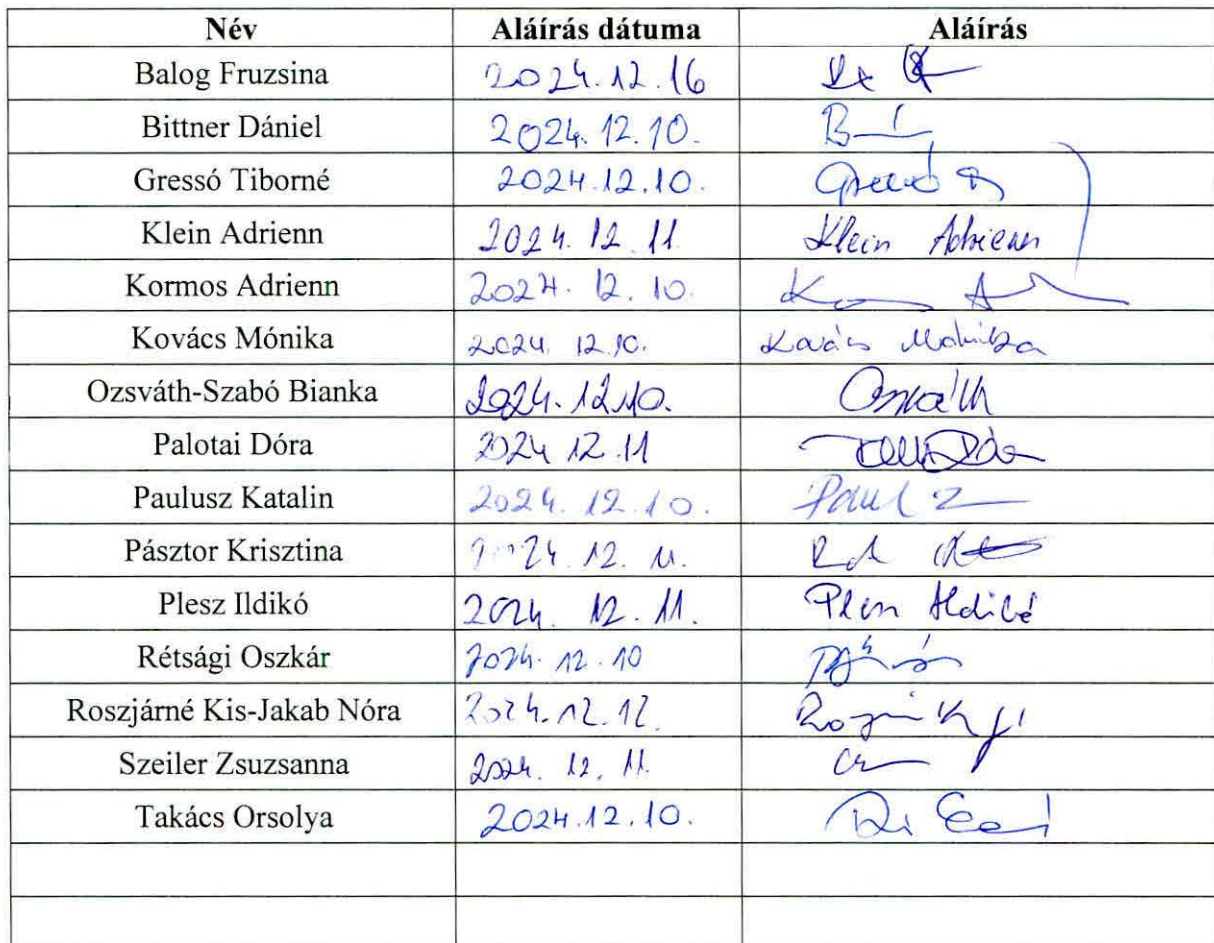 Név Aláírás dátuma Aláírás
Balog Fruzsina 2024.12.16
Bittner Dániel 2024.12.10.
Gressó Tiborné 2024.12.10.
Klein Adrienn 2024.12.11 Klein Adrienn
Kormos Adrienn 2024.12.10.
Kovács Mónika 2024.12.10. Kovács Mónika
Ozsváth-Szabó Bianka 2024.12.10.
Palotai Dóra 2024 12.11
Paulusz Katalin 2024.12.10.
Pásztor Krisztina 2024.12.11.
Plesz Ildikó 2024. 12.11. Plesz Ildikó
Rétsági Oszkár 2024.12.10
Roszjárné Kis-Jakab Nóra 2024.12.12.
Szeiler Zsuzsanna 2024. 12. 11.
Takács Orsolya 2024.12.10.